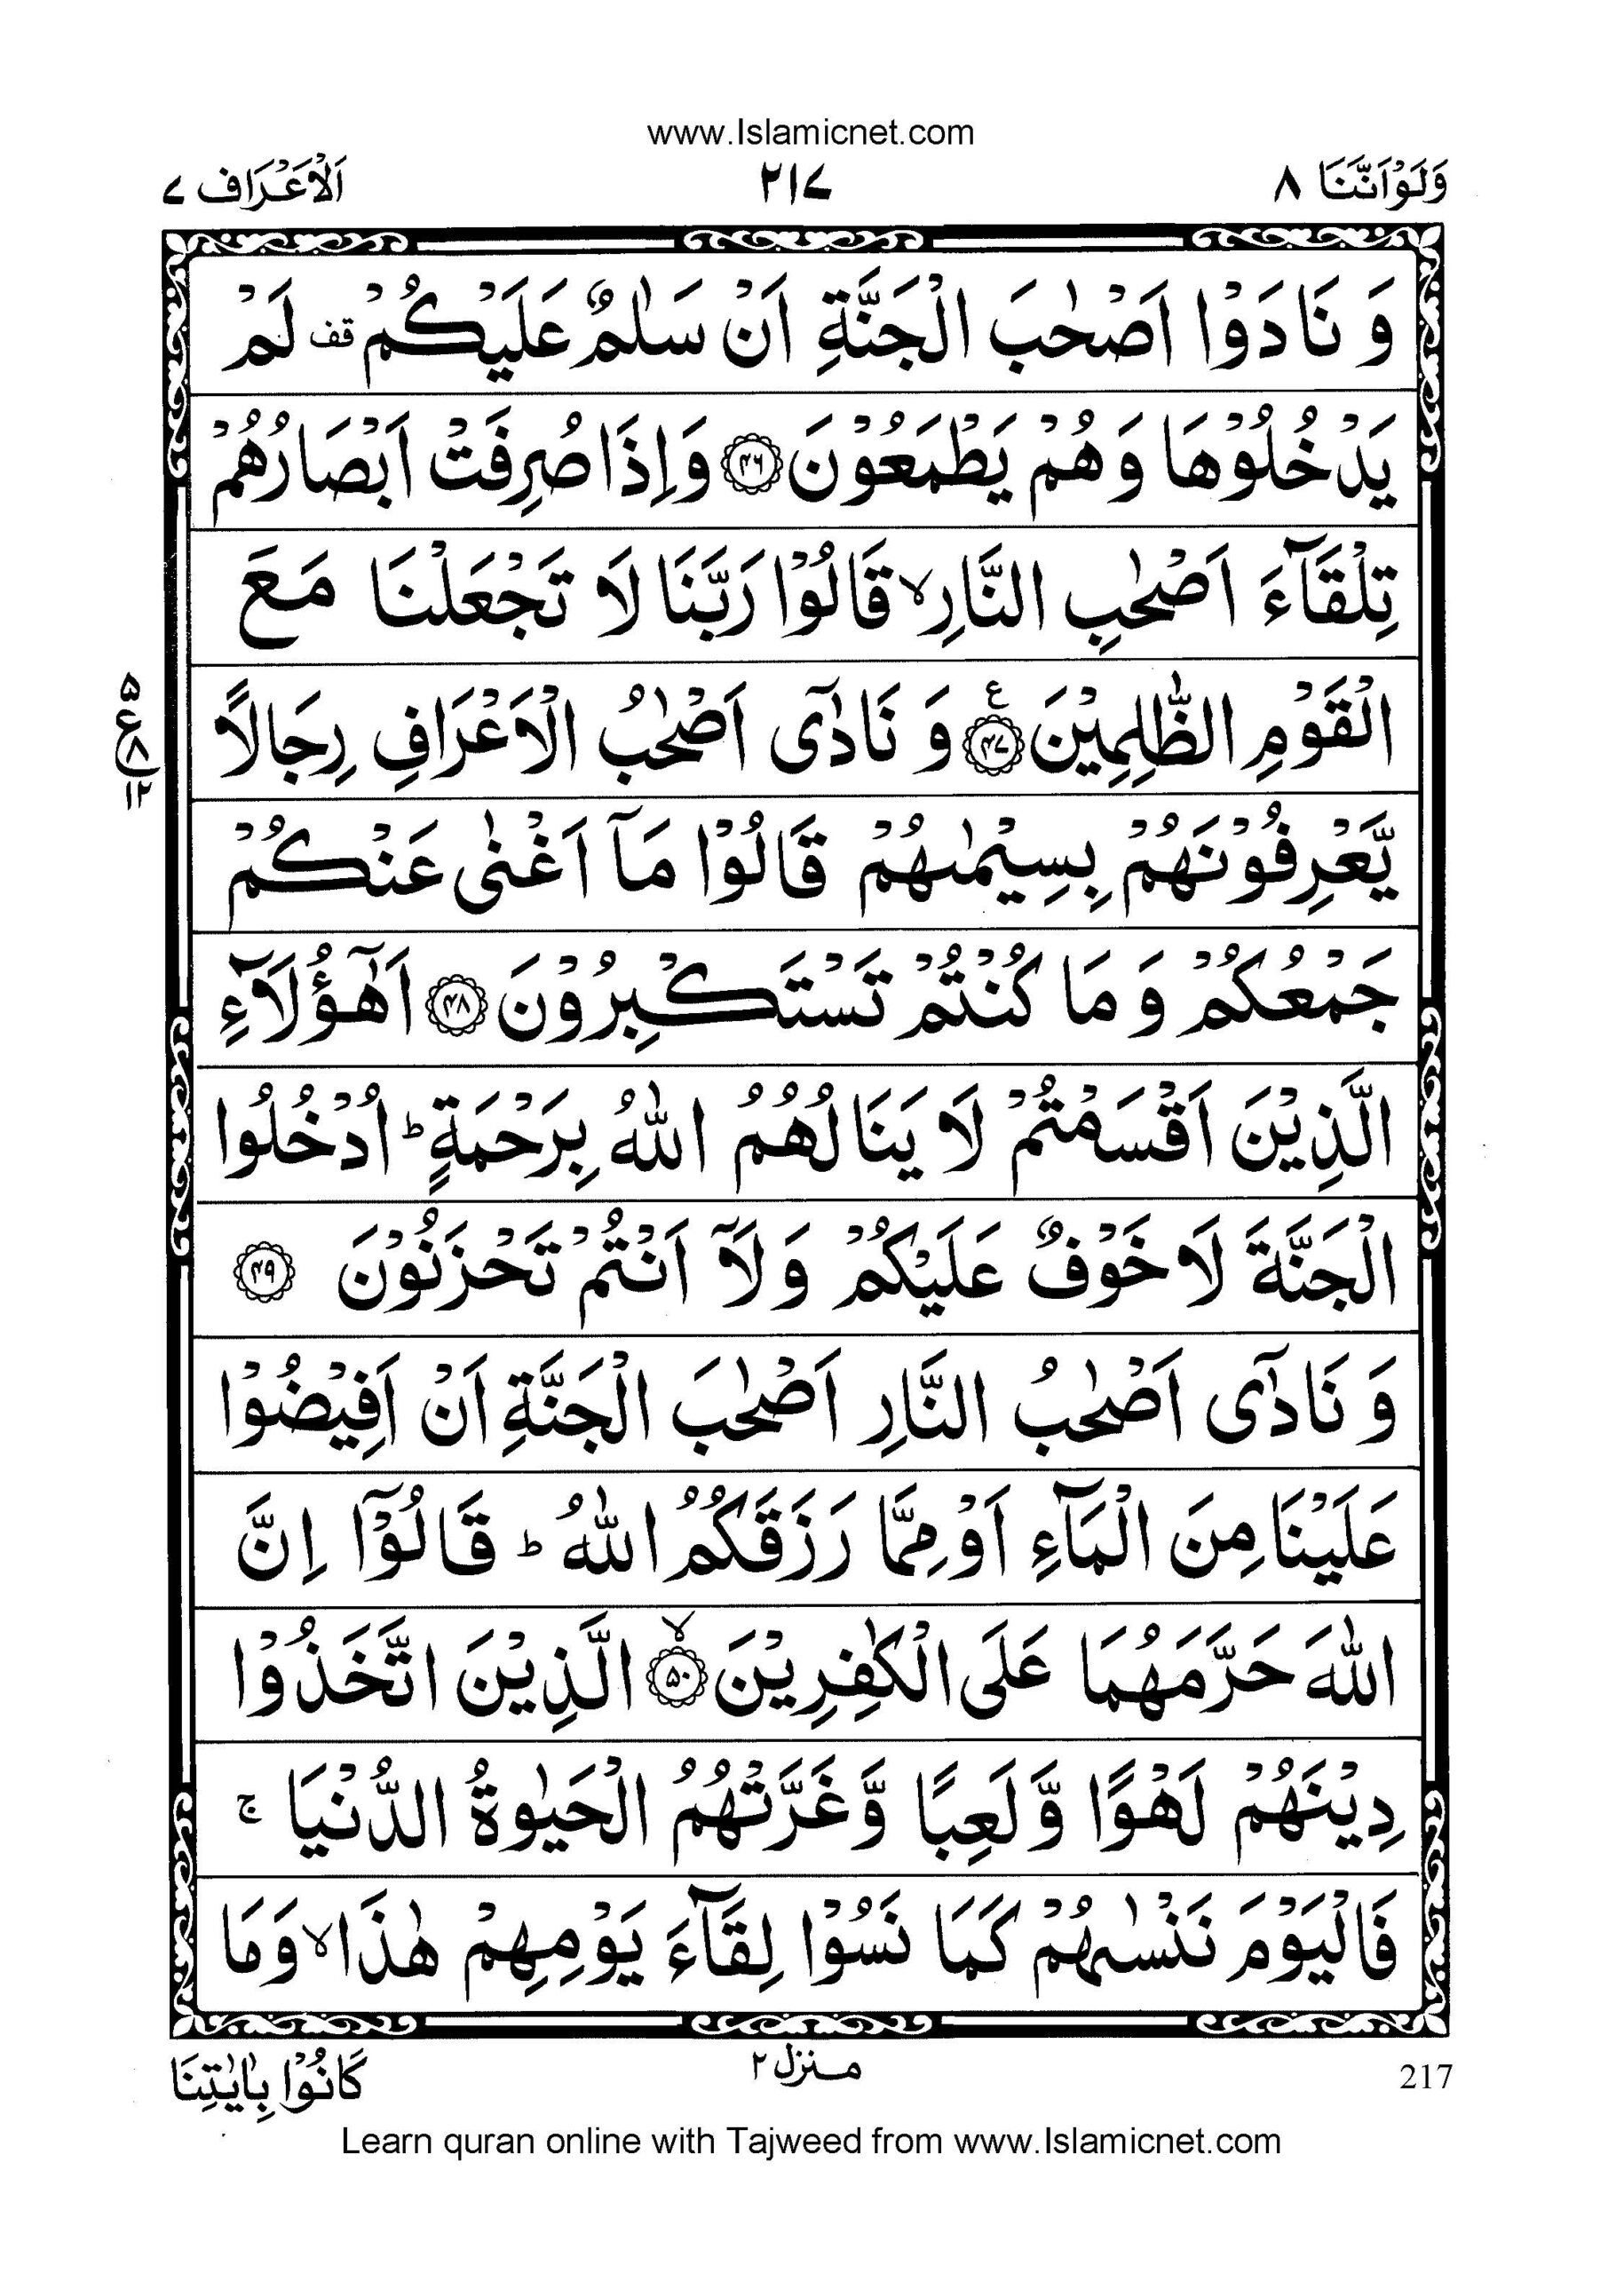 www.Islamicnet.com
وَلَوْاَنَّنَا ۸
۲۱۷
اَلْاَعْرَاف ۷
وَ نَادَوْا اَصْحٰبَ الْجَنَّةِ اَنْ سَلٰمٌ عَلَيْكُمْ ۫ لَمْ
يَدْخُلُوْهَا وَهُمْ يَطْمَعُوْنَ ﴿۴۶﴾ وَاِذَا صُرِفَتْ اَبْصَارُهُمْ
تِلْقَآءَ اَصْحٰبِ النَّارِ ۙ قَالُوْا رَبَّنَا لَا تَجْعَلْنَا مَعَ
الْقَوْمِ الظّٰلِمِيْنَ ﴿۴۷﴾ ع وَ نَادٰۤى اَصْحٰبُ الْاَعْرَافِ رِجَالًا
۵
ع
۸
۱۲
يَّعْرِفُوْنَهُمْ بِسِيْمٰىهُمْ قَالُوْا مَاۤ اَغْنٰى عَنْكُمْ
جَمْعُكُمْ وَ مَا كُنْتُمْ تَسْتَكْبِرُوْنَ ﴿۴۸﴾ اَهٰۤؤُلَآءِ
الَّذِيْنَ اَقْسَمْتُمْ لَا يَنَالُهُمُ اللّٰهُ بِرَحْمَةٍ ؕ اُدْخُلُوا
الْجَنَّةَ لَا خَوْفٌ عَلَيْكُمْ وَ لَاۤ اَنْتُمْ تَحْزَنُوْنَ ﴿۴۹﴾
وَ نَادٰۤى اَصْحٰبُ النَّارِ اَصْحٰبَ الْجَنَّةِ اَنْ اَفِيْضُوْا
عَلَيْنَا مِنَ الْمَآءِ اَوْ مِمَّا رَزَقَكُمُ اللّٰهُ ؕ قَالُوْۤا اِنَّ
اللّٰهَ حَرَّمَهُمَا عَلَى الْكٰفِرِيْنَ ﴿۵۰﴾ ۙ الَّذِيْنَ اتَّخَذُوْا
دِيْنَهُمْ لَهْوًا وَّ لَعِبًا وَّ غَرَّتْهُمُ الْحَيٰوةُ الدُّنْيَا ۚ
فَالْيَوْمَ نَنْسٰىهُمْ كَمَا نَسُوْا لِقَآءَ يَوْمِهِمْ هٰذَا ۙ وَمَا
217
منزل ۲
كَانُوْا بِاٰيٰتِنَا
Learn quran online with Tajweed from www.Islamicnet.com